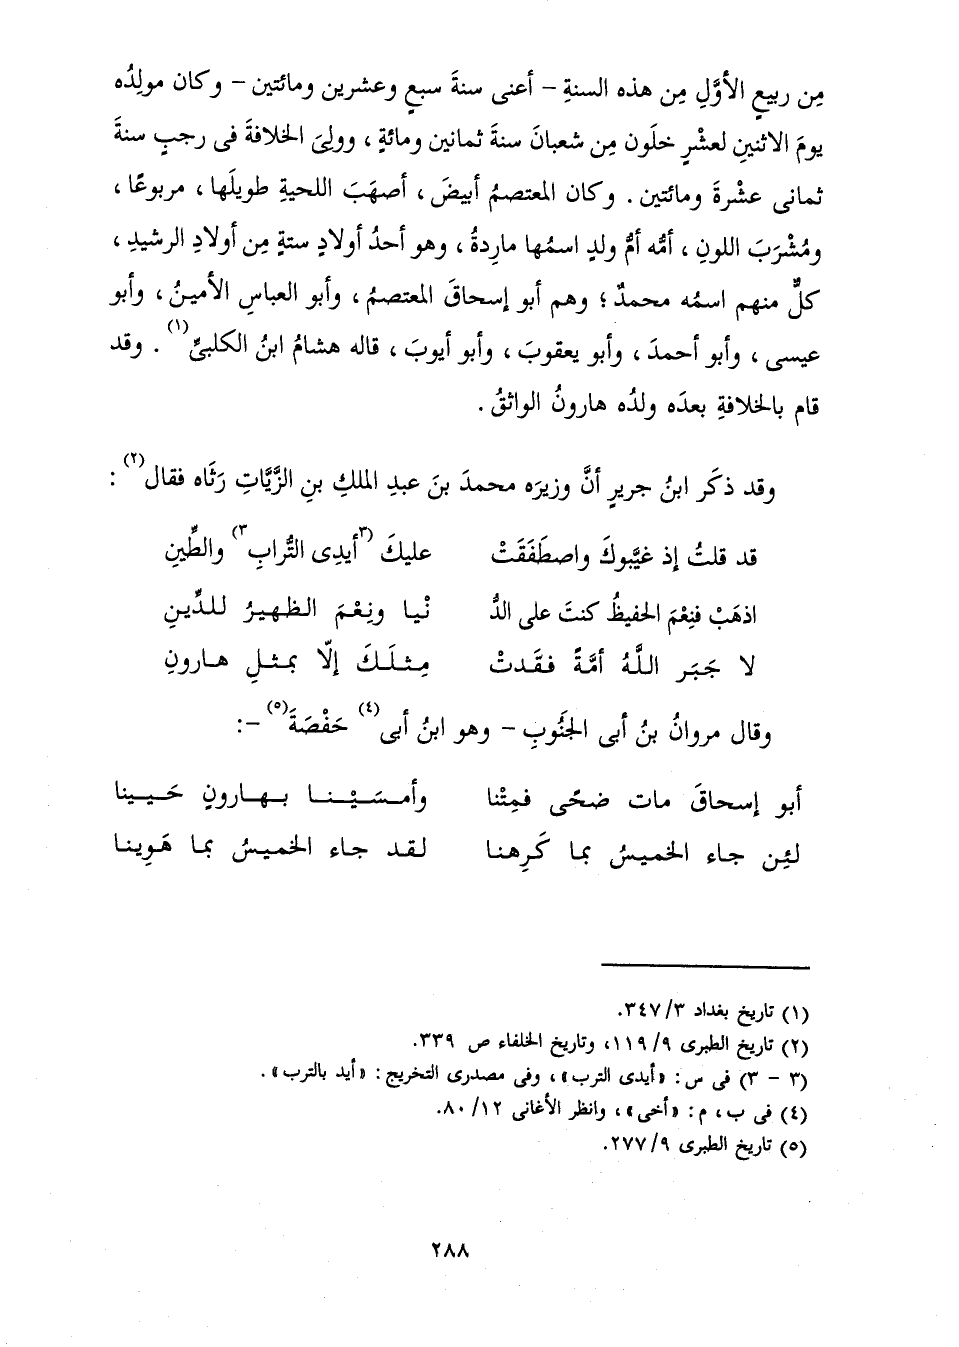 مِن ربيعٍ الأوَّلِ مِن هذه السنةِ – أعنى سنةَ سبعٍ وعشرين ومائتين – وكان مولِدُه
يومَ الاثنينِ لعشْرٍ خلَون مِن شعبانَ سنةَ ثمانين ومائةٍ ، وولِىَ الخلافةَ فى رجبٍ سنةَ
ثمانى عشْرةَ ومائتين . وكان المعتصمُ أبيضَ ، أصهَبَ اللحيةِ طويلَها ، مربوعًا ،
ومُشْرَبَ اللونِ ، أمُّه أمُّ ولدٍ اسمُها مارِدةُ ، وهو أحدُ أولادٍ ستةٍ مِن أولادِ الرشيدِ ،
كلٌّ منهم اسمُه محمدٌ ؛ وهم أبو إسحاقَ المعتصمُ ، وأبو العباسِ الأمينُ ، وأبو
عيسى ، وأبو أحمدَ ، وأبو يعقوبَ ، وأبو أيوبَ ، قاله هشامُ ابنُ الكلبىِّ(١) . وقد
قام بالخلافةِ بعدَه ولدُه هارونُ الواثقُ .
وقد ذكَر ابنُ جريرٍ أنَّ وزيرَه محمدَ بنَ عبدِ الملكِ بنِ الزَّيَّاتِ رَثَاه فقال(٢) :
قد قلتُ إذ غيَّبوكَ واصطَفَقَتْ عليكَ (٣أيدِى التُّرابِ٣) والطِّينِ
اذهَبْ فنِعْمَ الحفيظُ كنتَ على الدُّ نْيا ونِعْمَ الظهيرُ للدِّينِ
لا جَبَر اللَّهُ أمَّةً فقَدتْ مِثلَكَ إلّا بمثلِ هارونِ
وقال مروانُ بنُ أبى الجَنُوبِ – وهو ابنُ أبى(٤) حَفْصَةَ(٥) –:
أبو إسحاقَ مات ضحًى فمِتْنا وأمسَيْنا بهارونٍ حَيِينا
لئِن جاء الخميسُ بما كَرِهنا لقد جاء الخميسُ بما هَوِينا
(١) تاريخ بغداد ٣/ ٣٤٧.
(٢) تاريخ الطبرى ٩/ ١١٩، وتاريخ الخلفاء ص ٣٣٩.
(٣ – ٣) فى س: «أيدى الترب»، وفى مصدرى التخريج: «أيد بالترب».
(٤) فى ب، م: «أخى»، وانظر الأغانى ١٢/ ٨٠.
(٥) تاريخ الطبرى ٩/ ٢٧٧.
٢٨٨